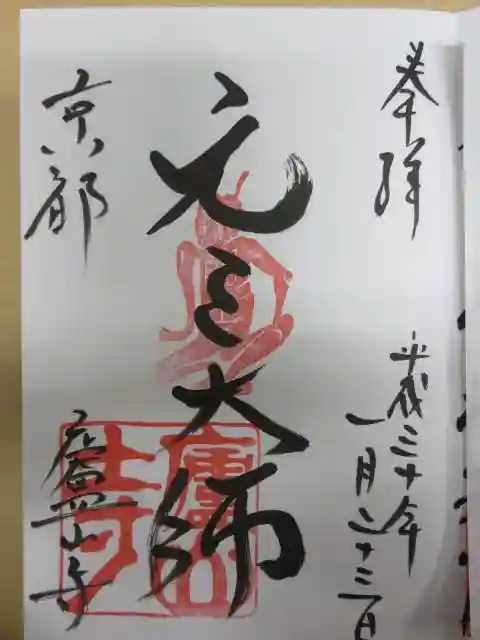 奉拝
平成三十年
一月二十三日
元三大師
京都
廬山寺
廬山寺